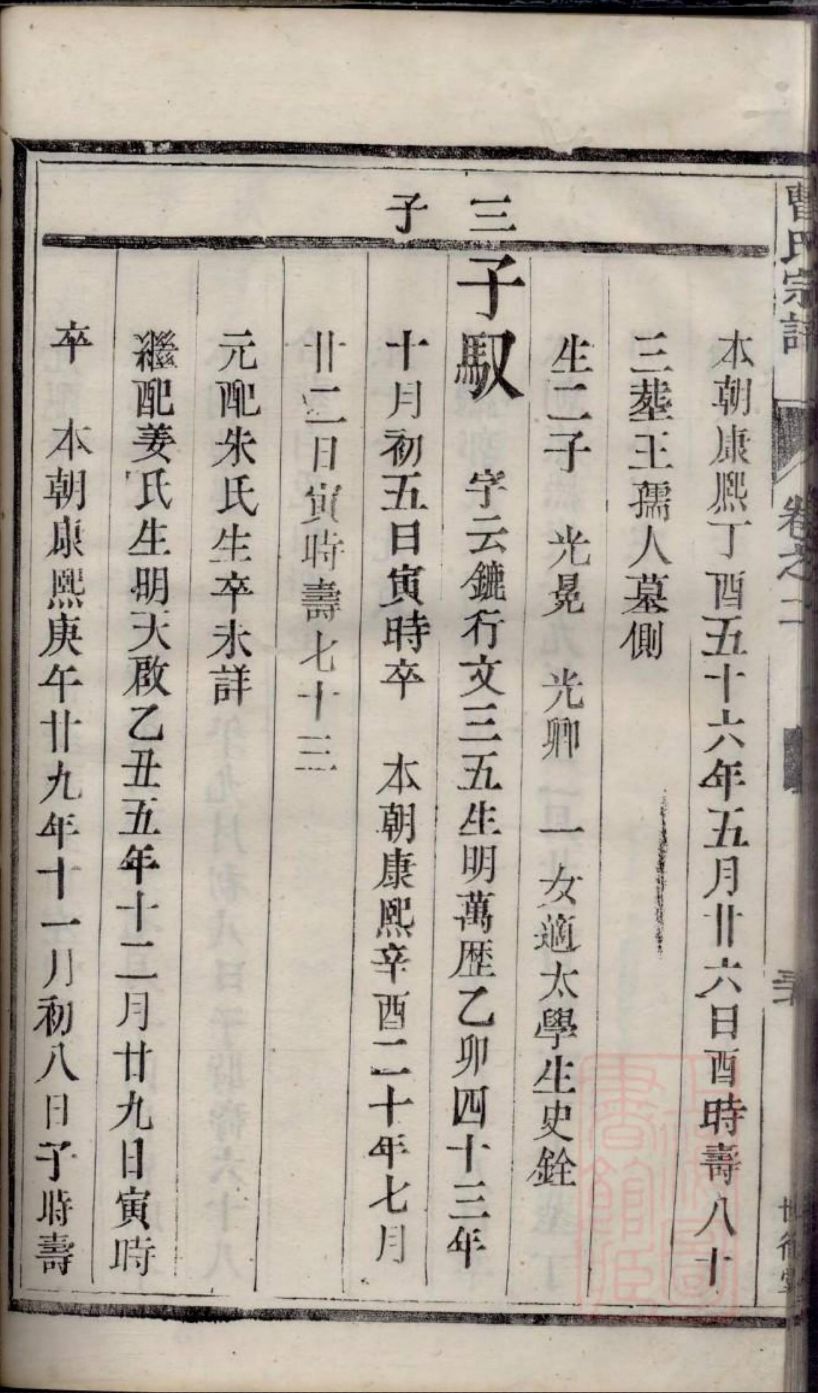 曹氏宗譜
卷之二
三子
本朝康熙丁酉五十六年五月廿六日酉時壽八十
三塟王孺人墓側
生二子 光晃 光卿 一女適太學生史銓
子馭 字云鑣行文三五生明萬歷乙卯四十三年
十月初五日寅時卒 本朝康熙辛酉二十年七月
廿二日寅時壽七十三
元配朱氏生卒未詳
繼配姜氏生明天啟乙丑五年十二月廿九日寅時
卒 本朝康熙庚午廿九年十一月初八日子時壽